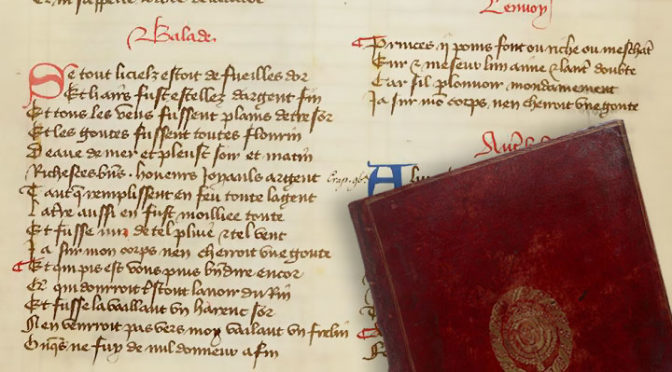 Balade.
Se tout li cielz estoit de fueilles dor
Et li airs fust estellez dargent fin
Et tous les vens fussent plains de tresor
Et les goutes fussent toutes florin
Deaue de mer et pleust soir et matin
Richesces bns. honeurs Joyauls argent
Tant q remplissent en feu toute lagent
La tre aussi en fust moilliee toute
Et fusse nuz de tel pluie & tel vent
Ja sur mon corps nen cherroit vne goute
Et qui pis est vous puis bn dire encor
Que qui donrroit tstout lauoir du Rin
Et fusse la vaillant vn harenc sor
Nen venrroit pas vers moy vailant vn frelin
Onqs ne fuy de nul donneur a fin
Lenvoy
Princes ij poins font ou riche ou meschat
Eur & meseur lun aime & laut doubte
Car sil plouuoir mondainement
Ja sur mo corps, nen cherroit vne goute